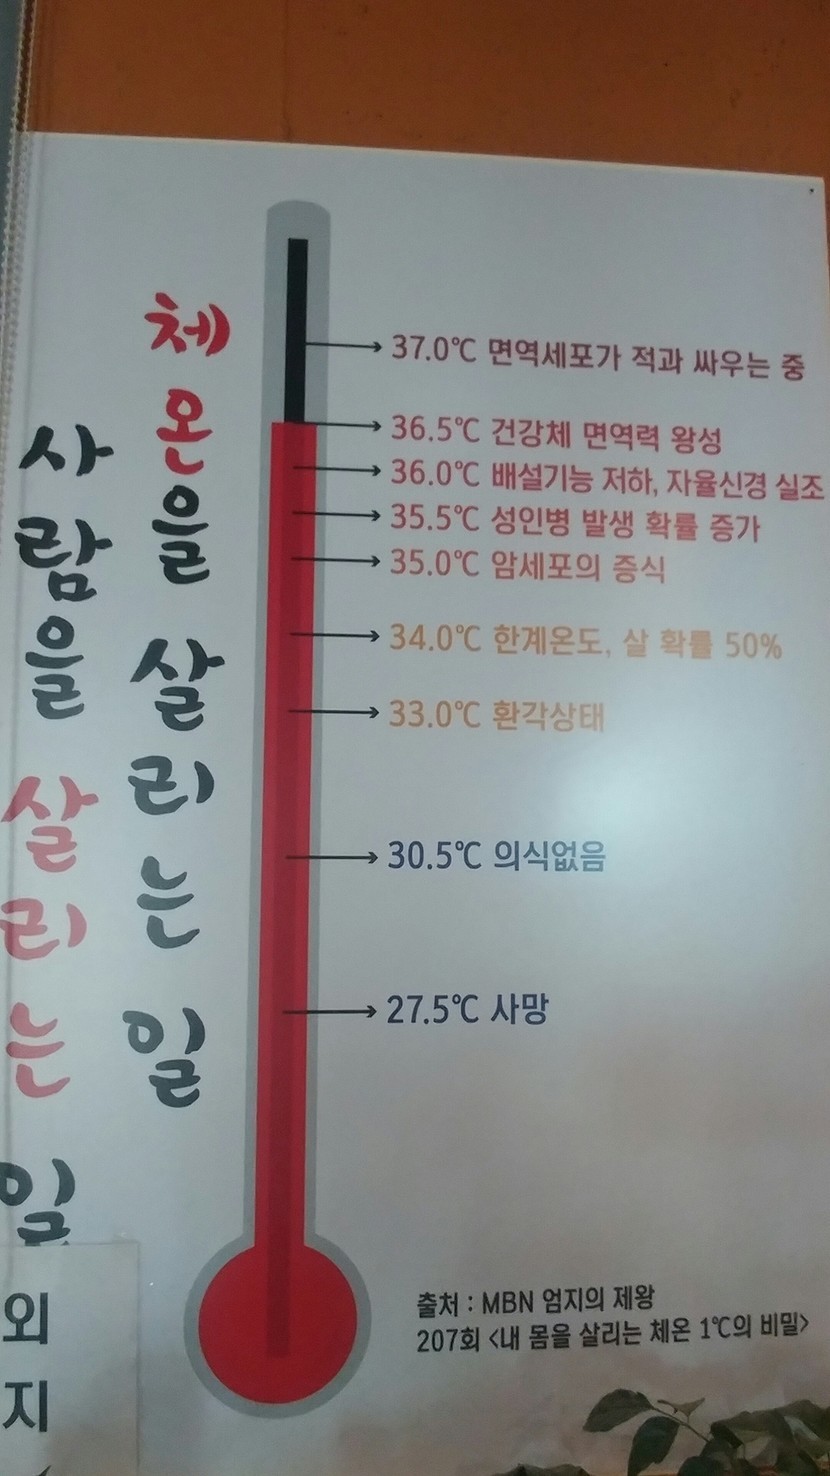 체온을 살리는 일
사람을 살리는 일
37.0℃ 면역세포가 적과 싸우는 중
36.5℃ 건강체 면역력 왕성
36.0℃ 배설기능 저하, 자율신경 실조
35.5℃ 성인병 발생 확률 증가
35.0℃ 암세포의 증식
34.0℃ 한계온도, 살 확률 50%
33.0℃ 환각상태
30.5℃ 의식없음
27.5℃ 사망
출처 : MBN 엄지의 제왕
207회 <내 몸을 살리는 체온 1℃의 비밀>
외
지